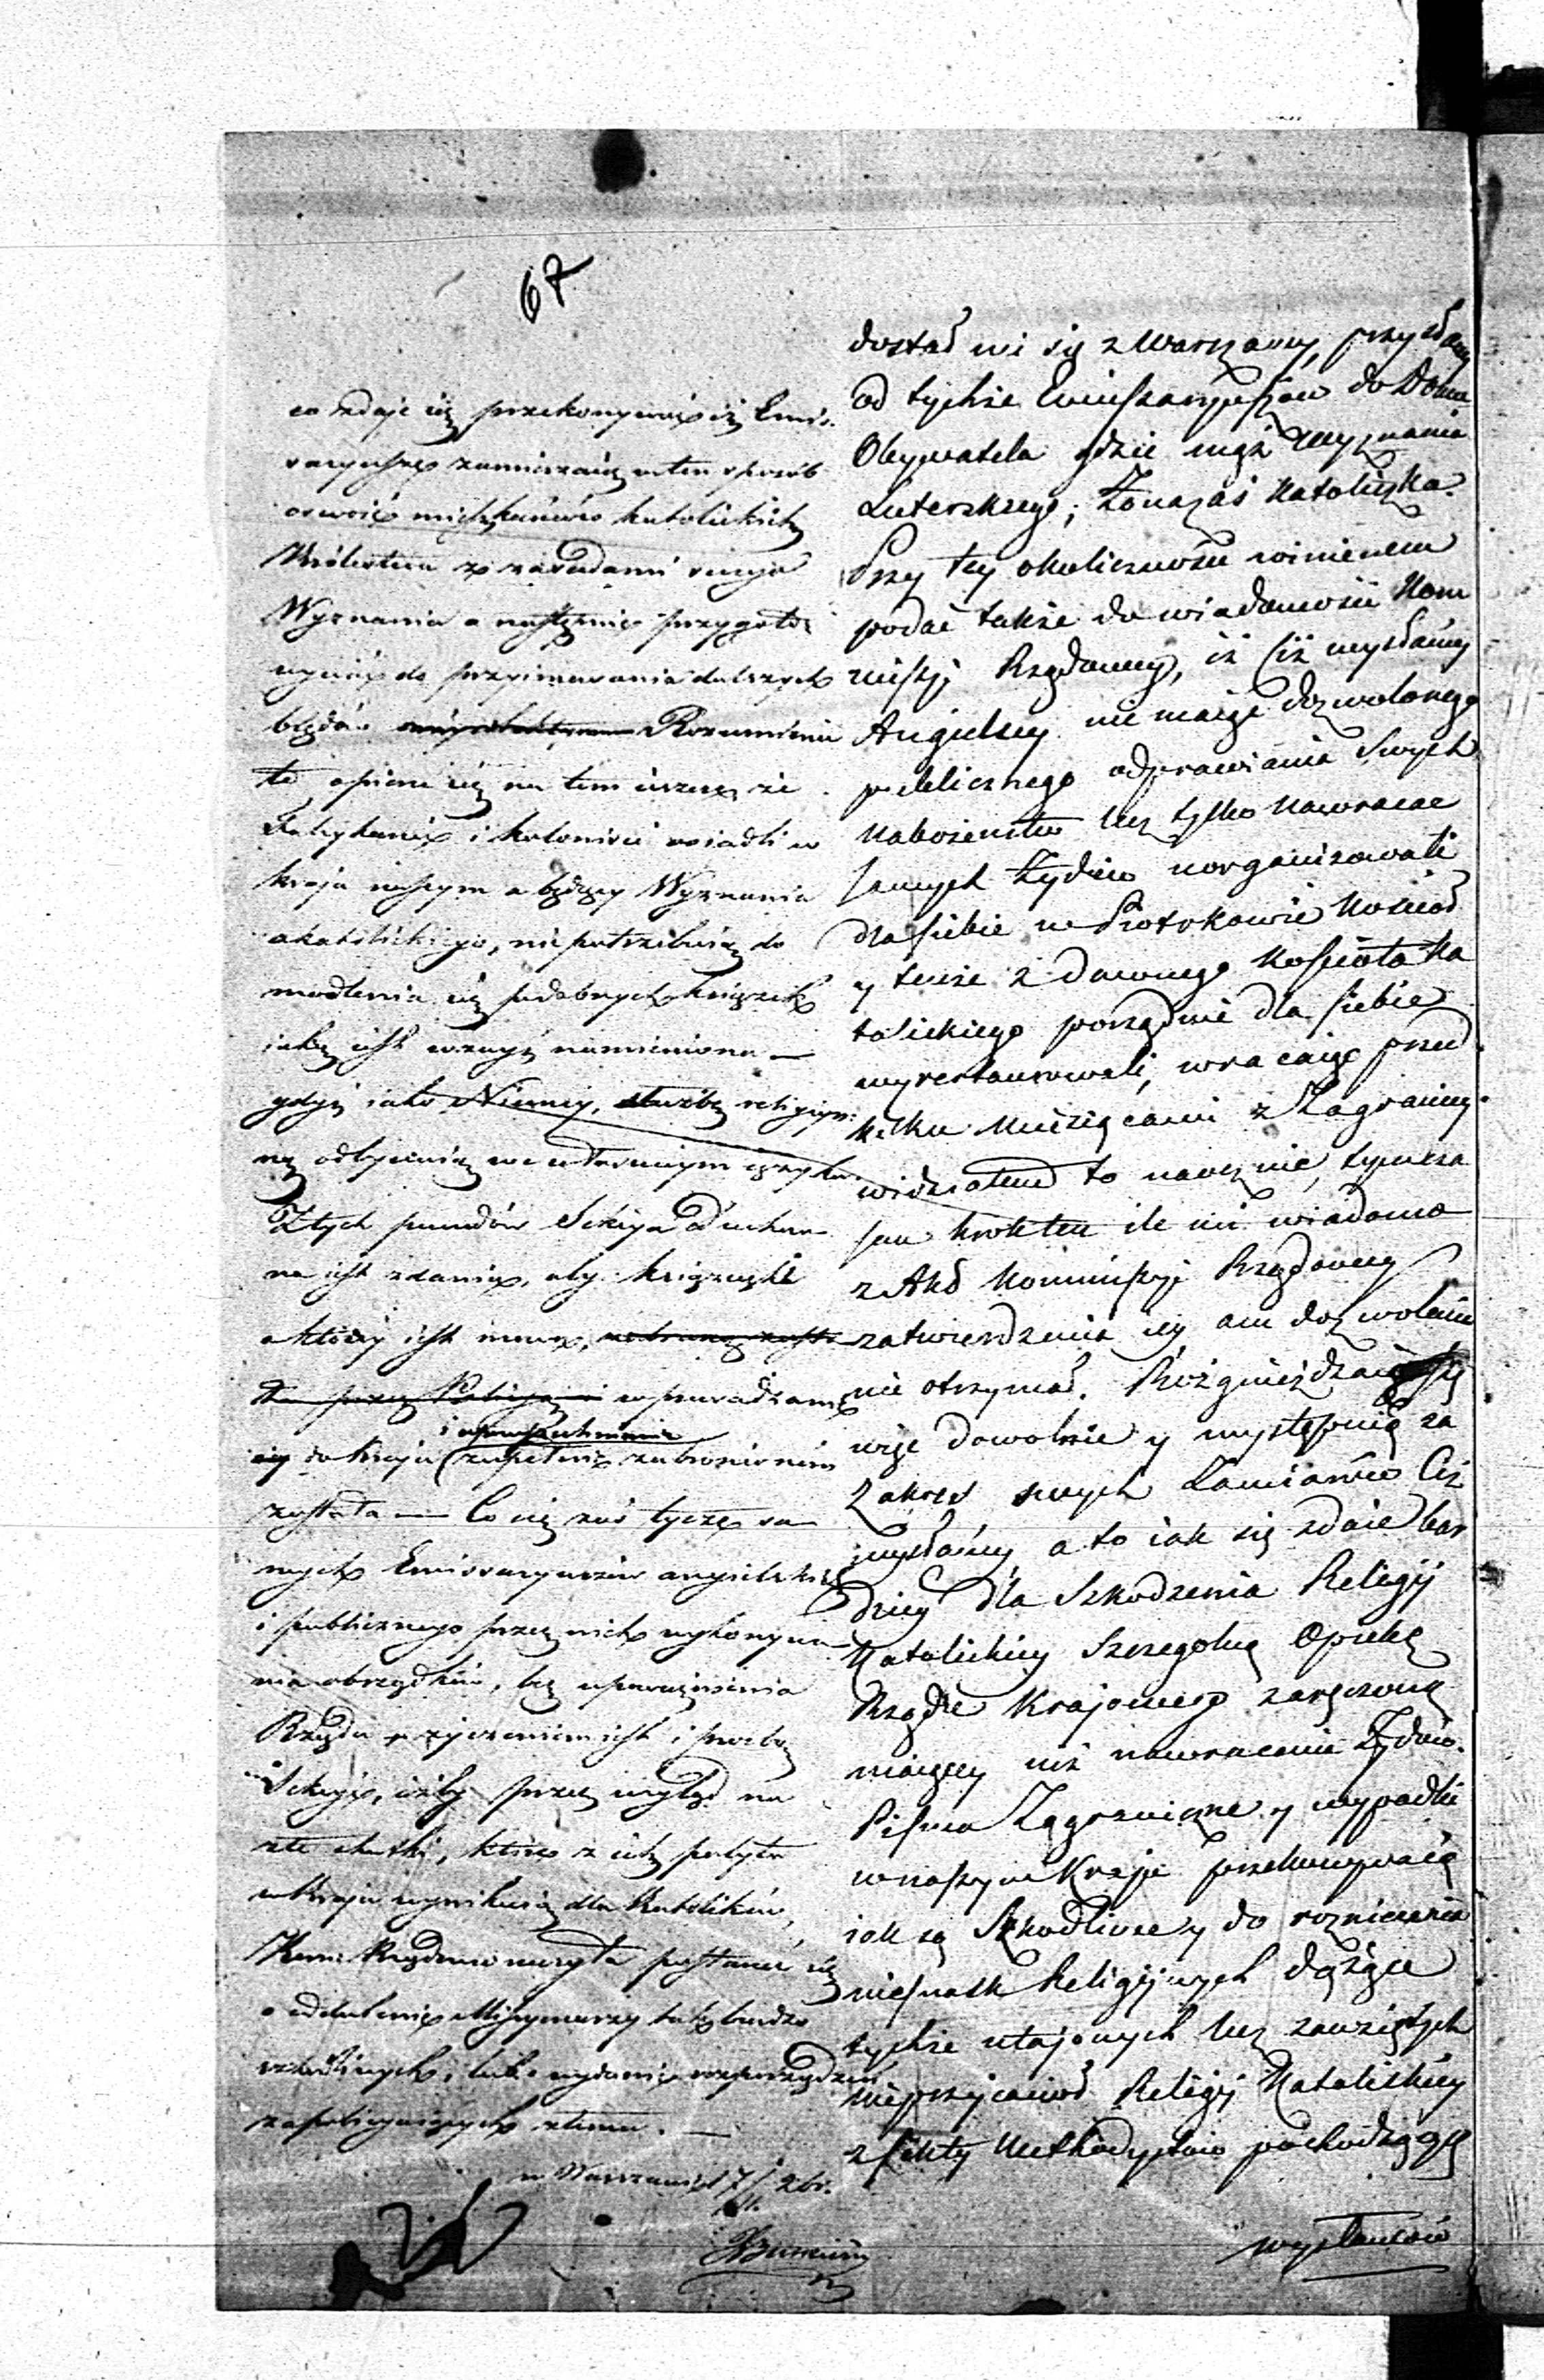 67
co zdaje się przekonywać iż Emis-
saryusze zamierzaią w ten sposób
oswoić mieszkańców katolickich
Królestwa z zasadami swego
Wyznania a następnie przygoto-
wywać do przyimowania dalszych
błędów Rozumienie
to opiera się na tem ieszcze, że
Fabrykanci i koloniści osiadli w
kraju naszym a będący Wyznania
akatolickiego, nie potrzebuią do
modlenia się podobnych książek
iaka iest wzwyż namieniona —
gdyż iako Niemcy, służbę religijn-
ną odbywaią we własnym ięzyku.
Z tych powodów Sekcya Duchow-
na iest zdania, aby książeczki
o któréy iest mowa,
wprowadzanie
iey do kraju zupełnie zabronionem
zostało — Co się zaś tycze sa-
mych Emissaryuszów angielskich
i publicznego przez nich wykonywa-
nia obrządków, bez upoważnienia
Rządu życzeniem iest i prosbą
Sekcyi, iżby przez wzgląd na
złe skutki, które z ich pobytu
w kraju wynikaią dla Katolików,
Kom: Rządowa raczyła postarać się
o oddalenie Missyonarzy tak bardzo
szkodliwych, lub o wydanie rozporządzeń
zapobiegaiących złemu. —
w Warszawie d 7/ 2br.
dostał mi się z Warszawy, przysłany
od tychże Emissaryuszów do Domu
Obywatela gdzie mąż Wyznania
Luterskiego, Żona zaś Katoliczka.
Przy tey okoliczności winienem
podać także do wiadomości Kom
missyi Rządowey, iż ciż wysłańcy
Angielscy nie maiąc dozwolonego
publicznego odprawiania swych
Nabożeństw lecz tylko Nawracać
samych Żydów uorganizowali
dla siebie w Piotrkowie Kościoł
y tenże z dawnego Kościoła Ka
tolickiego porządnie dla siebie
wyrestaurowali, wracaiąc przed
kilku Miesiącami z Zagranicy
widziałem to naocznie, tymcza
sem krok ten ile mi wiadomo
z Akt Kommissyi Rządowey
zatwierdzenia iey ani dozwolenia
nie otrzymał. Rozgnieżdzaią się
więc dowolnie y występuią za
zakres swych Zamiarów Ciż
wysłańcy, a to iak się zdaie bar
dziey dla Szkodzenia Religij
Katolickiey Szczegolną Opiekę
Rządu Krajowego zaręczoną
maiącey niż nawracania Żydów.
Pisma Zagraniczne y wypadki
w naszym Kraju przekonywaią
iak są Szkodliwe y do rozniecania
niesnask Religijnych dążące
tychże utajonych lecz zawziętych
nieprzyiacioł Religij Katolickiey
z sekty Methodystów pochodzących
wysłańców